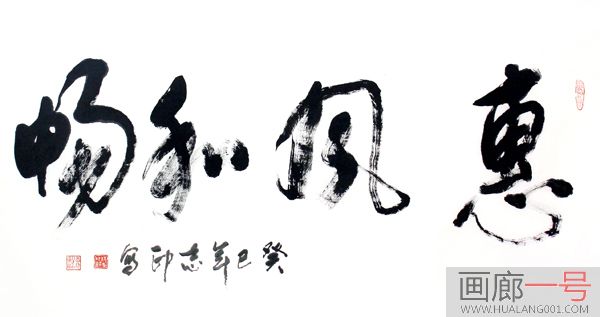 惠风和畅
癸巳年志印写
画廊一号
WWW.HUALANG001.COM